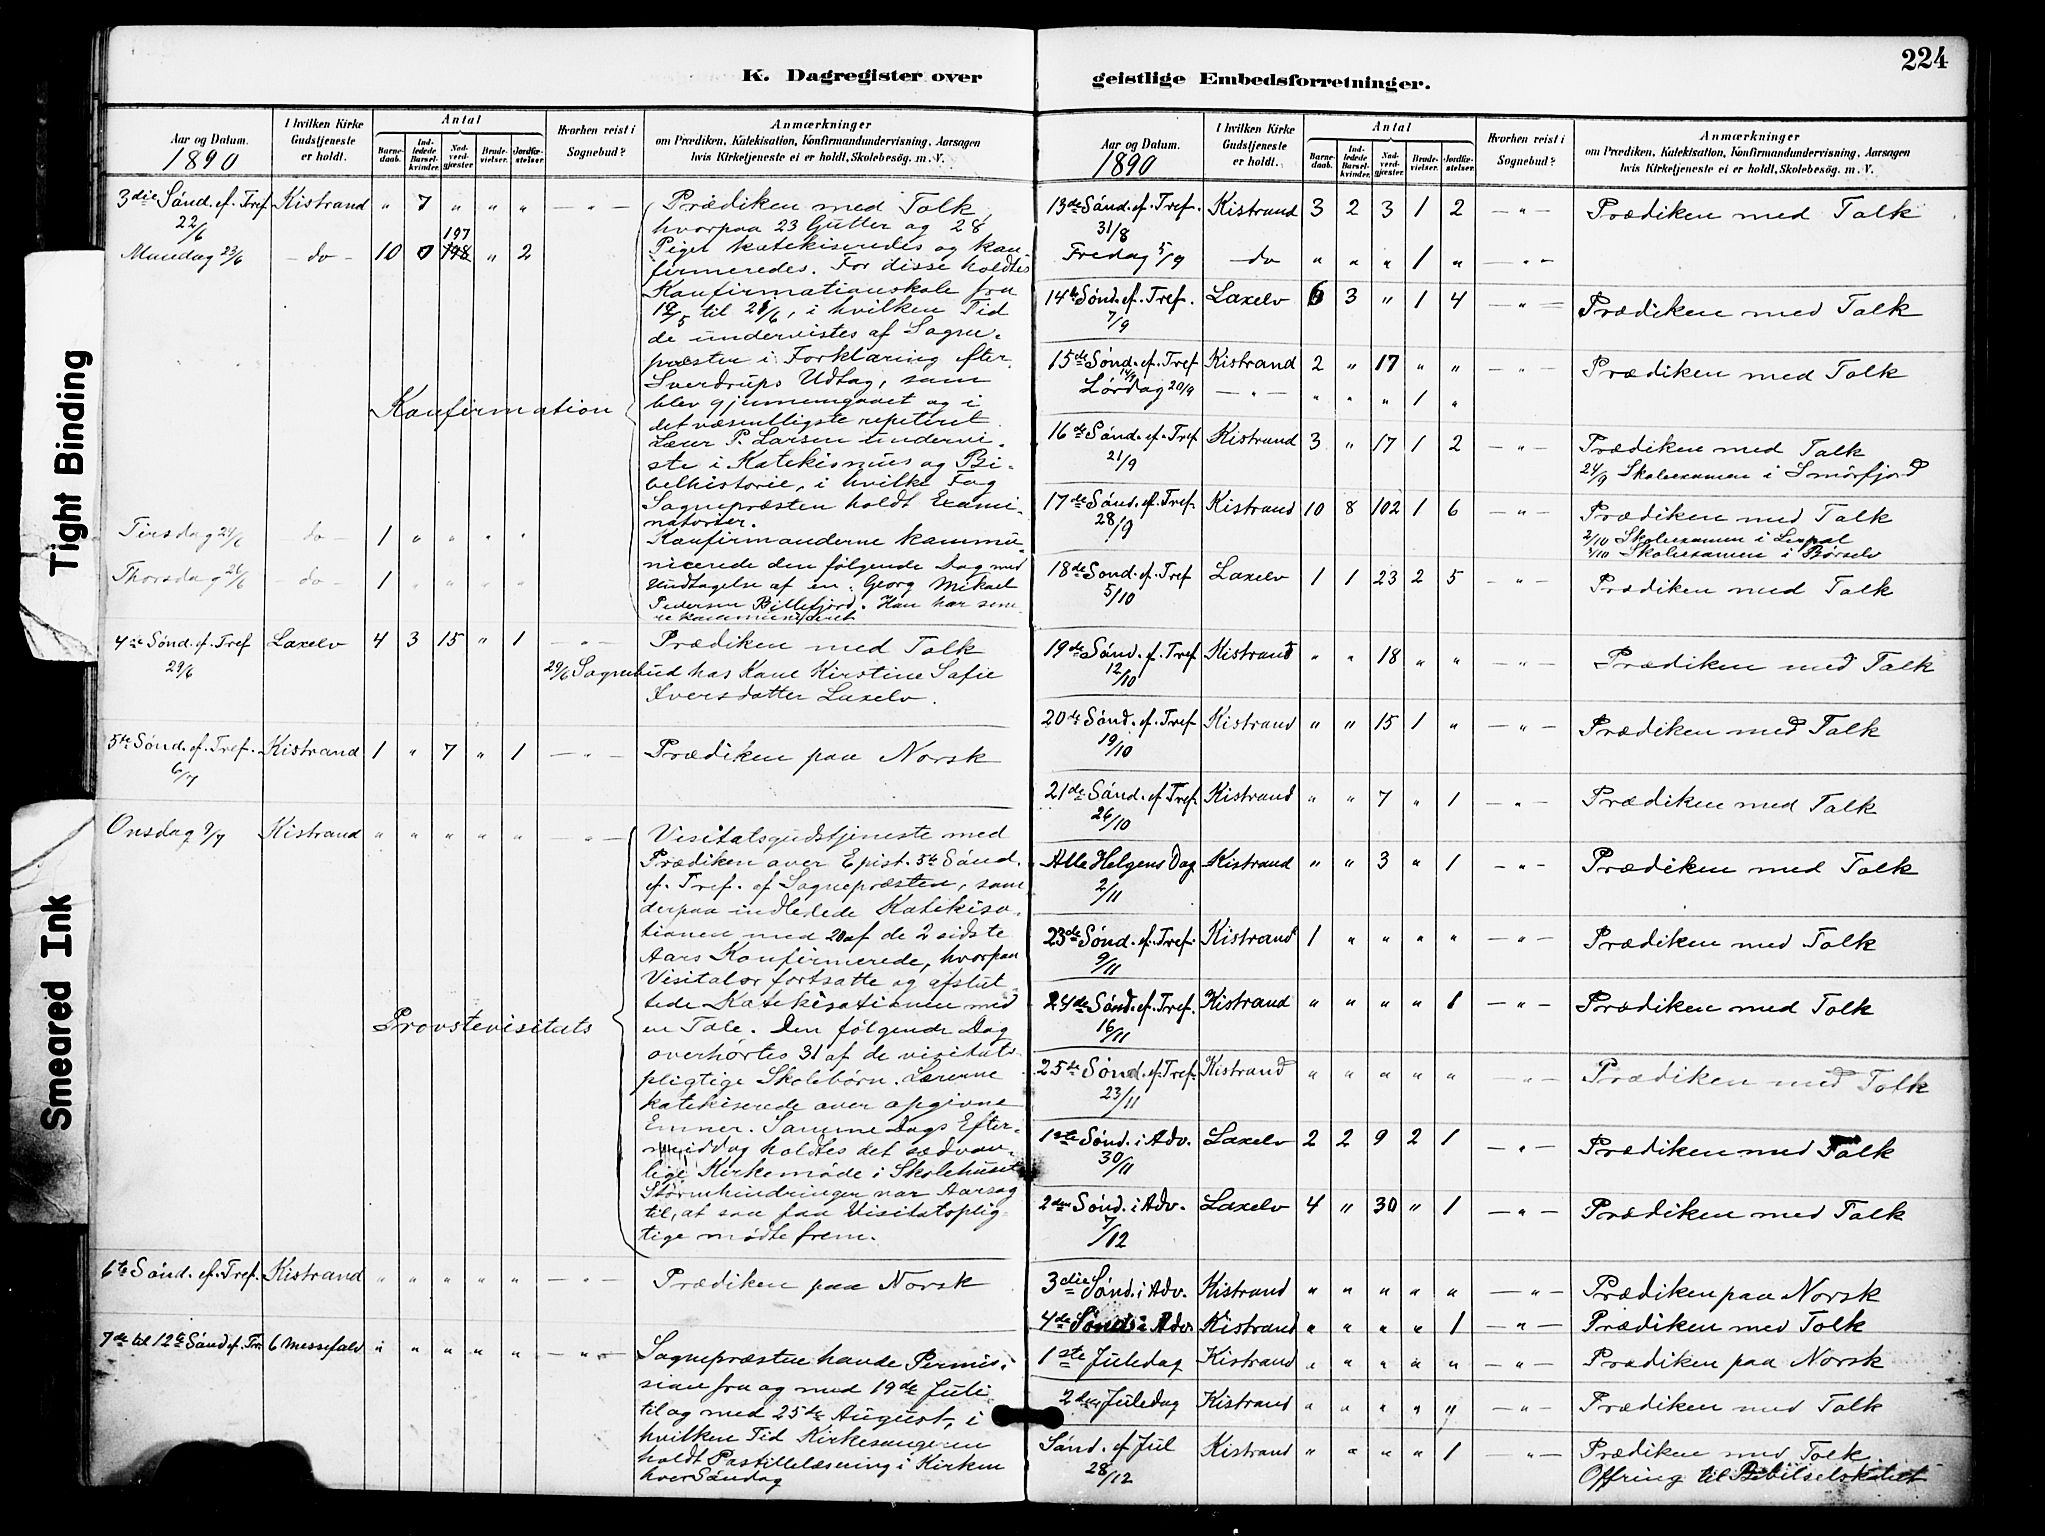 224
K. Dagregister over
geistlige Embedsforretninger.
Aar og Datum.
1890
I hvilken Kirke Gudstjeneste er holdt.
Antal
Barnedaab.
Indledede Barselkvinder.
Nadverdgjæster.
Brudevielser.
Jordfæstelser.
Hvorhen reist i Sognebud?
Anmærkninger
om Prædiken, Katekisation, Konfirmandundervisning, Aarsagen
hvis Kirketjeneste ei er holdt, Skolebesög. m. V.
3die Sönd. ef. Tref. Kistrand " 7 " " " — " — Prædiken med Tolk,
22/6
hvorpaa 23 Gutter og 28
197
Mandag 23/6 — do — 10 0 198 " 2 Piger katekiseredes og kon
firmeredes. For disse holdtes
Konfirmationskole fra
19/5 til 21/6, i hvilken Tid
de undervistes af Sogne-
præsten i Forklaring efter
Sverdrups Udtog, som
blev gjennemgaaet og i
Konfirmation
det væsentligste repeteret.
Lærer P. Larsen undervi-
ste i Katekismus og Bi-
belhistorie, i hvilke Fag
Sognepræsten holdt Exami-
natorier.
Tirsdag 24/6 — do — 1 " " " " Konfirmanderne kommu-
nicerede den følgende Dag med
Thorsdag 26/6 — do — 1 " " " " Undtagelse af en: Georg Mikael
Pedersen Billefjord. Han har sene-
re kommuniseret
4de Sönd. ef. Tref Laxelv 4 3 15 " 1 " Prædiken med Tolk
29/6
29/6 Sognebud hos Kone Kirstine Sofie
Iversdatter Laxelv.
5te Sönd. ef. Tref. Kistrand 1 " 7 " 1 — " — Prædiken paa Norsk
6/7
Onsdag 9/7 Kistrand " " " " " " — Visitatsgudstjeneste med
Prædiken over Epist. 5te Sönd.
ef. Tref. af Sognepræsten, som
derpaa indledede Katekisa-
tionen med 20 af de 2 sidste
Aars Konfirmerede, hvorpaa
Visitator fortsatte og afslut-
tede Katekisationen med
Provstevisitats
en Tale. Den følgende Dag
overhørtes 31 af de visitats-
pligtige Skolebörn. Lærerne
katekiserede over opgivne
Emner. Samme Dags Efter-
middag holdtes det sædvan-
lige Kirkemøde i Skolehuset
Stormhindringer var Aarsag
til, at saa faa Visitatsplig-
tige mødte frem.
6te Sönd. ef. Tref. Kistrand " " " " " — " — Prædiken paa Norsk
7de til 12te Sönd ef. Tr. 6 Messefald " " " " " — " — Sognepræsten havde Permis-
sion fra og med 19de Juli
til og med 25de August, i
hvilken Tid Kirkesangeren
holdt Postillelæsning i Kirken
hver Söndag
Aar og Datum.
1890
I hvilken Kirke Gudstjeneste er holdt.
Antal
Barnedaab.
Indledede Barselkvinder.
Nadverdgjæster.
Brudevielser.
Jordfæstelser.
Hvorhen reist i Sognebud?
Anmærkninger
om Prædiken, Katekisation, Konfirmandundervisning, Aarsagen
hvis Kirketjeneste ei er holdt, Skolebesög. m. V.
13de Sönd. ef. Tref. Kistrand 3 2 3 1 2 — " — Prædiken med Tolk
31/8
Fredag 5/9 — do " " " 1 " — " —
14de Sönd. ef. Tref. Laxelv 6 3 " 1 4 — " — Prædiken med Tolk
7/9
15de Sönd. ef. Tref Kistrand 2 " 17 " " — " — Prædiken med Tolk
14/9
Lørdag 20/9 — " — " " " 1 "
16de Sönd. ef. Tref Kistrand 3 " 17 1 2 — " — Prædiken med Tolk
21/9
24/9 Skoleexamen i Smörfjord
17de Sönd. ef. Tref. Kistrand 10 8 102 1 6 — " — Prædiken med Tolk
28/9
2/10 Skoleexamen i
Skoleexamen i Börselv
18de Sönd. ef. Tref Laxelv 1 1 23 2 5 — " — Prædiken med Tolk
5/10
19de Sönd. ef. Tref Kistrand " " 18 " " — " — Prædiken med Tolk
12/10
20de Sönd. ef. Tref Kistrand " " 15 1 " — " — Prædiken med Tolk
19/10
21de Sönd. ef. Tref. Kistrand " " 7 " 1 — " — Prædiken med Tolk
26/10
Alle Helgens Dag Kistrand " " 3 " 1 — " — Prædiken med Tolk
2/11
23de Sönd. ef. Tref. Kistrand 1 " " " " — " — Prædiken med Tolk
9/11
24de Sönd. ef. Tref. Kistrand " " " " 1 — " — Prædiken med Tolk
16/11
25de Sönd. ef. Tref. Kistrand " " " " " — " — Prædiken med Tolk
23/11
1ste Sönd. i Adv. Laxelv 2 2 9 2 1 — " — Prædiken med Tolk
30/11
2den Sönd. i Adv. Laxelv 4 " 30 " 1 — " — Prædiken med Tolk
7/12
3die Sönd. i Adv. Kistrand " " " " " — " — Prædiken paa Norsk
4de Sönd. i Adv. Kistrand " " " " 1 — " — Prædiken med Tolk
1ste Juledag Kistrand " " " " " — " — Prædiken paa Norsk
2den Juledag Kistrand " " " " " — " — Prædiken med Tolk
Sönd. ef Jul Kistrand " " " " 1 " — Prædiken med Tolk.
28/12
Offring til Bibelselskabet
Tight Binding
Smeared Ink